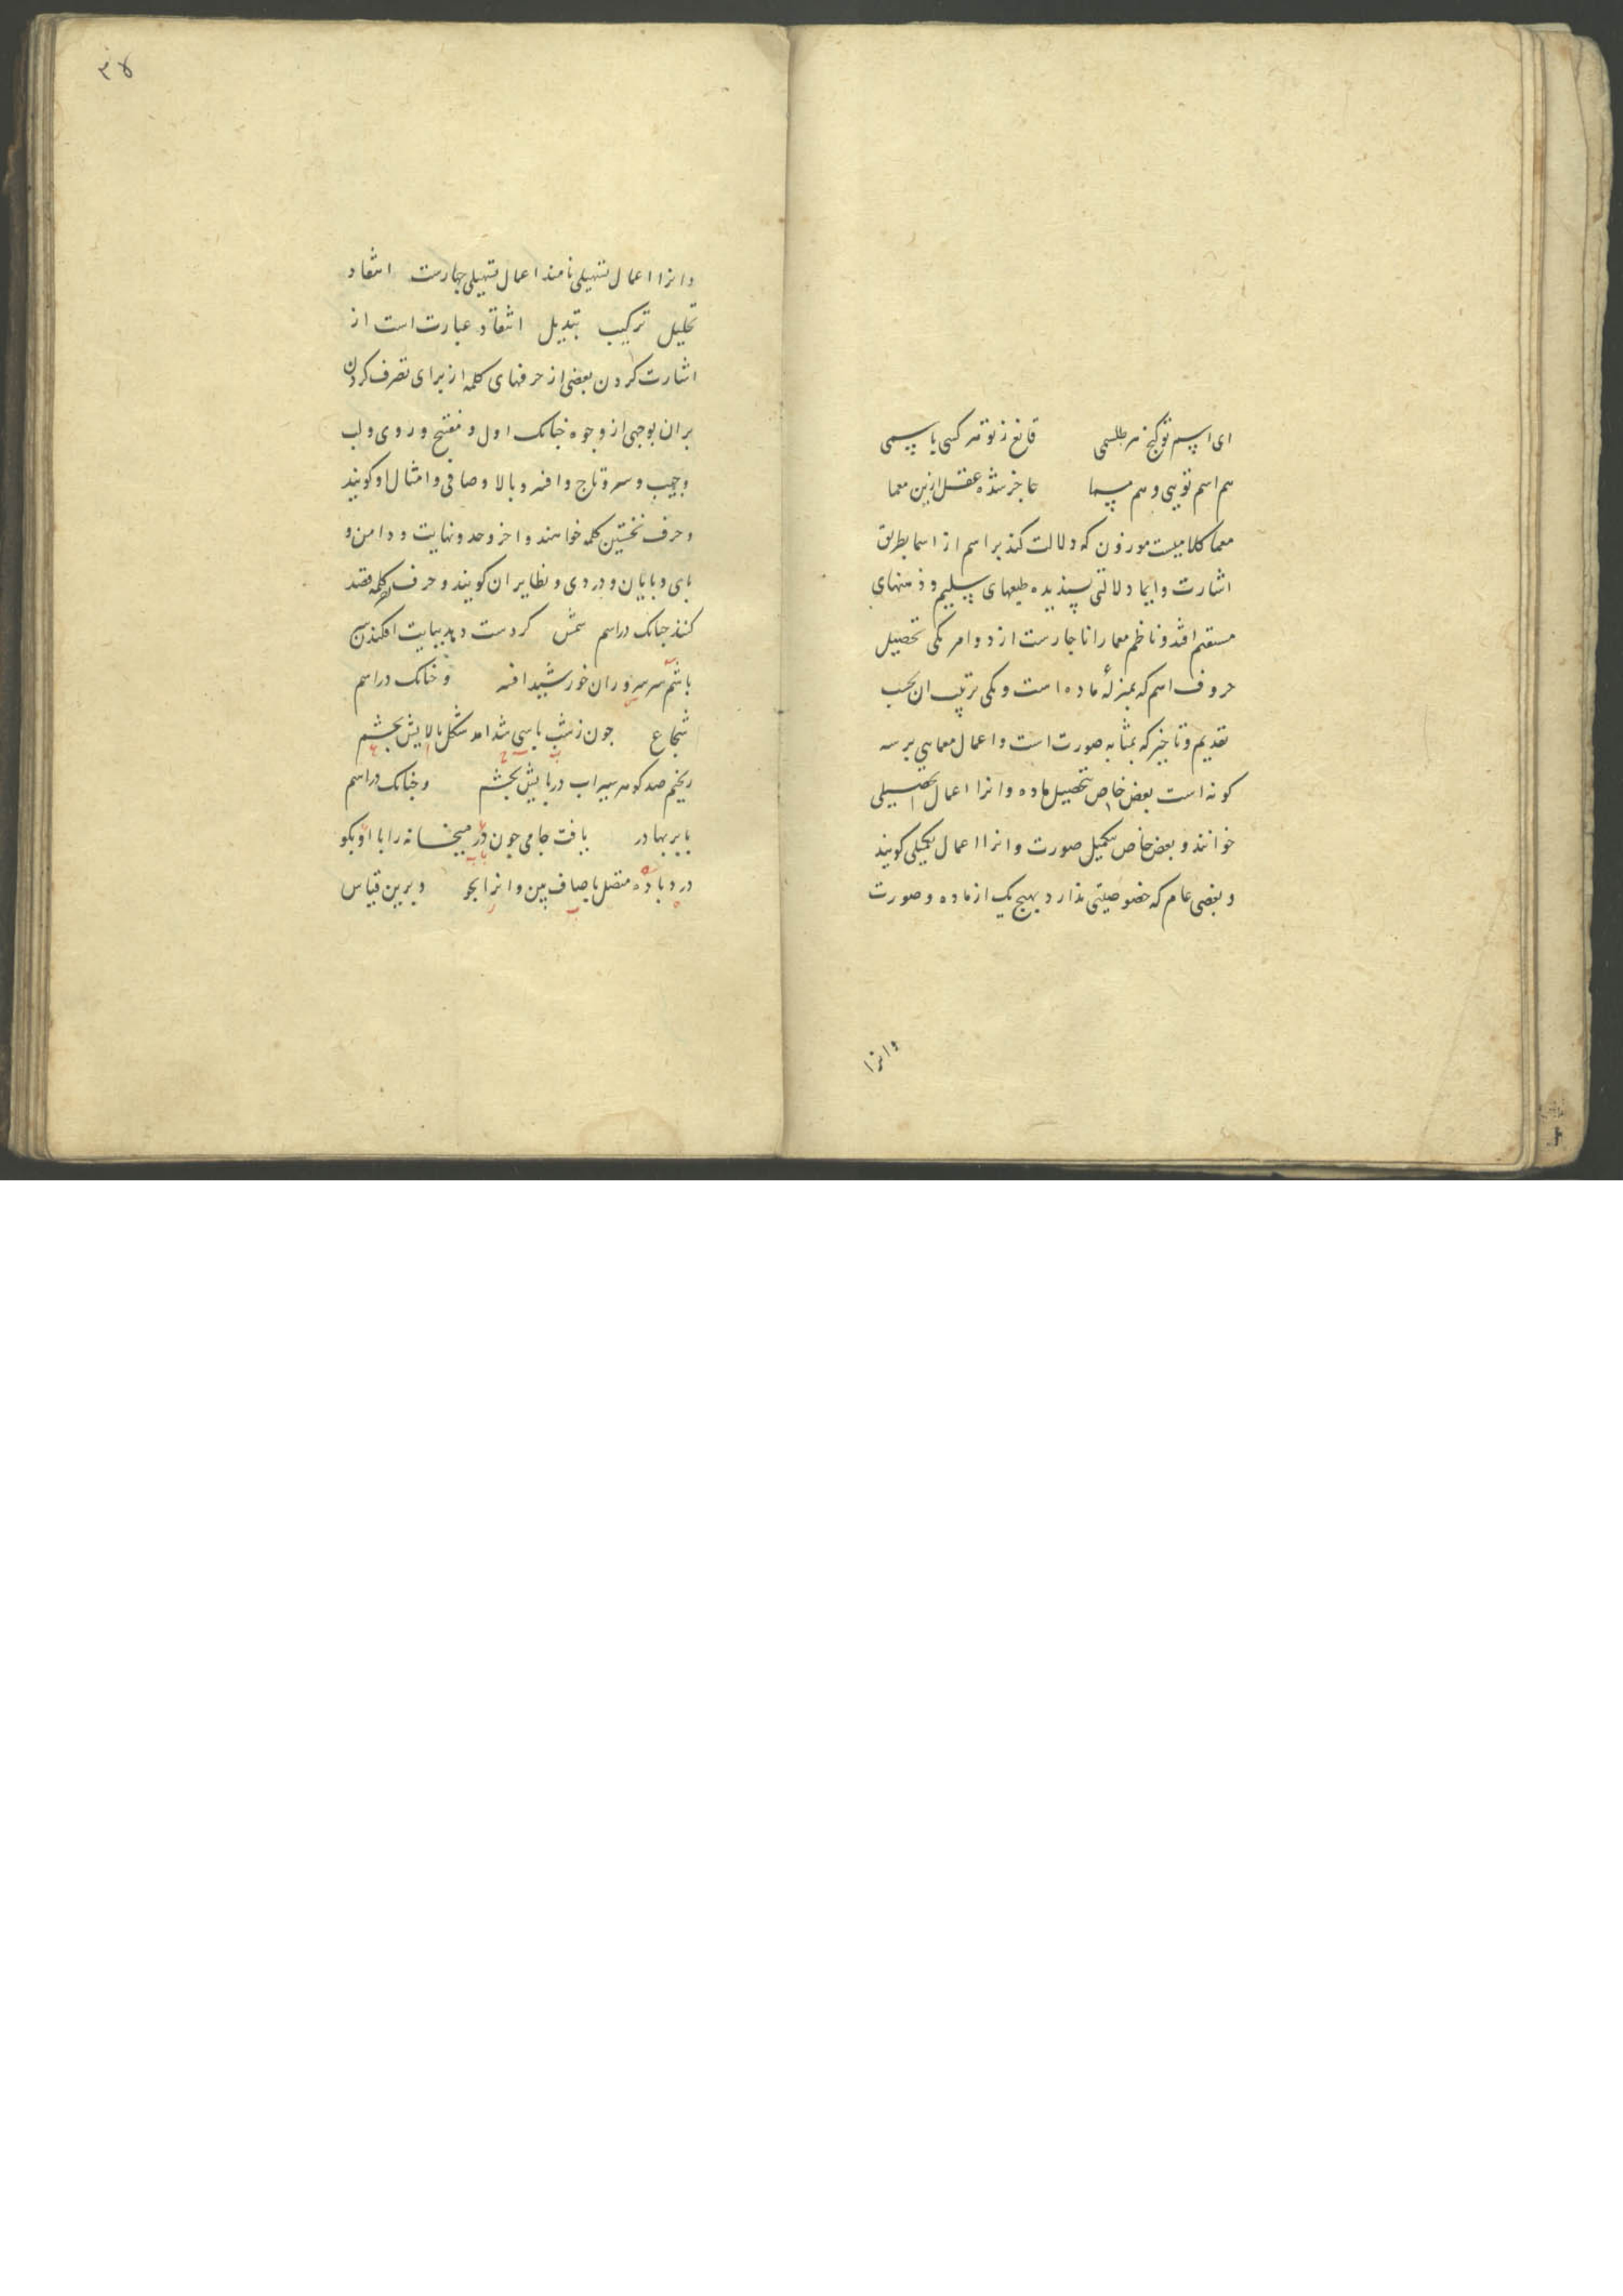 ای اسم تو گنج هر طلسمی قانع ز تو هر کسی باسمی
هم اسم تویی و هم مسما عاجز شده عقل ازین معما
معما کلامیست موزون که دلالت کند بر اسم از اسما بطریق
اشارت و ایما دلالتی پسندیده طبعهای سلیم و ذهنهای
مستقیم افتد و ناظم معما را ناچارست از دو امر یکی تحصیل
حروف اسم که بمنزلهٔ ماده است و یکی ترتیب ان بحسب
تقدیم و تاخیر که بمثابه صورت است و اعمال معمایی بر سه
کونه است بعض خاص بتحصیل ماده و انرا اعمال تحصیلی
خوانند و بعض خاص بتکمیل صورت و انرا اعمال تکمیلی کویند
و بعضی عام که خصوصیتی ندارد بهیچ یک از ماده و صورت
وانرا
۳۸
وانرا اعمال تسهیلی نامند اعمال تسهیلی چهارست انتقاد
تحلیل ترکیب تبدیل انتقاد عبارت است از
اشارت کردن ببعضی از حرفهای کلمه از برای تصرف کردن
بران بوجهی از وجوه چنانک اول و مفتتح و روی و لب
و جیب و سر و تاج و افسر و بالا و صافی و امثال او کویند
و حرف نخستین کلمه خواهند و اخر و حد و نهایت و دامن و
پای و پایان و دردی و نظایر ان کویند و حرف اخر کلمه قصد
کنند چنانک در اسم شمس کر دست دهد بپایت افکندن سر
باشم سر سروران خورشید افسر و چنانک در اسم
شجاع چون ز شب پاسی شد امد شکل بالایش بچشم
ریختم صد کوهر سیراب در پایش بچشم و چنانک در اسم
بابر بهادر یافت جامی چون در میخانه را با او بکو
درد باده متصل با صاف بین وانرا بجو و برین قیاس